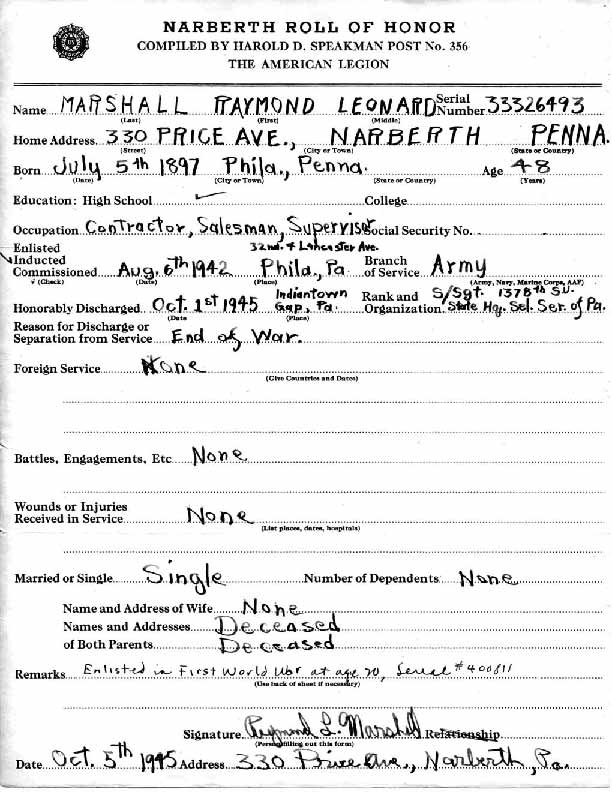 NARBERTH ROLL OF HONOR
COMPILED BY HAROLD D. SPEAKMAN POST No. 356
THE AMERICAN LEGION
Name MARSHALL RAYMOND LEONARD Serial Number 33326493
(Last) (First) (Middle)
Home Address 330 PRICE AVE., NARBERTH PENNA.
(Street) (City or Town) (State or Country)
Born July 5th 1897 Phila., Penna. Age 48
(Date) (City or Town) (State or Country) (Years)
Education: High School ✓ College
Occupation Contractor, Salesman, Supervisor Social Security No.
Enlisted 32nd. & Lancaster Ave.
✓ Inducted Branch
Commissioned Aug. 6th 1942 Phila., Pa of Service Army
√ (Check) (Date) (Place) (Army, Navy, Marine Corps, AAF)
Indiantown Rank and S/Sgt. 1378th SU.
Honorably Discharged Oct. 1st 1945 Gap, Pa. Organization State Hq. Sel. Ser. of Pa.
(Date (Place)
Reason for Discharge or
Separation from Service End of War.
Foreign Service None
(Give Countries and Dates)
Battles, Engagements, Etc None
Wounds or Injuries
Received in Service None
(List places, dates, hospitals)
Married or Single Single Number of Dependents None
Name and Address of Wife None
Names and Addresses Deceased
of Both Parents Deceased
Remarks Enlisted in First World War at age 20, Serial #400811
(Use back of sheet if necessary)
Signature Raymond L. Marshall Relationship
(Person filling out this form)
Date Oct. 5th 1945 Address 330 Price Ave., Narberth, Pa.